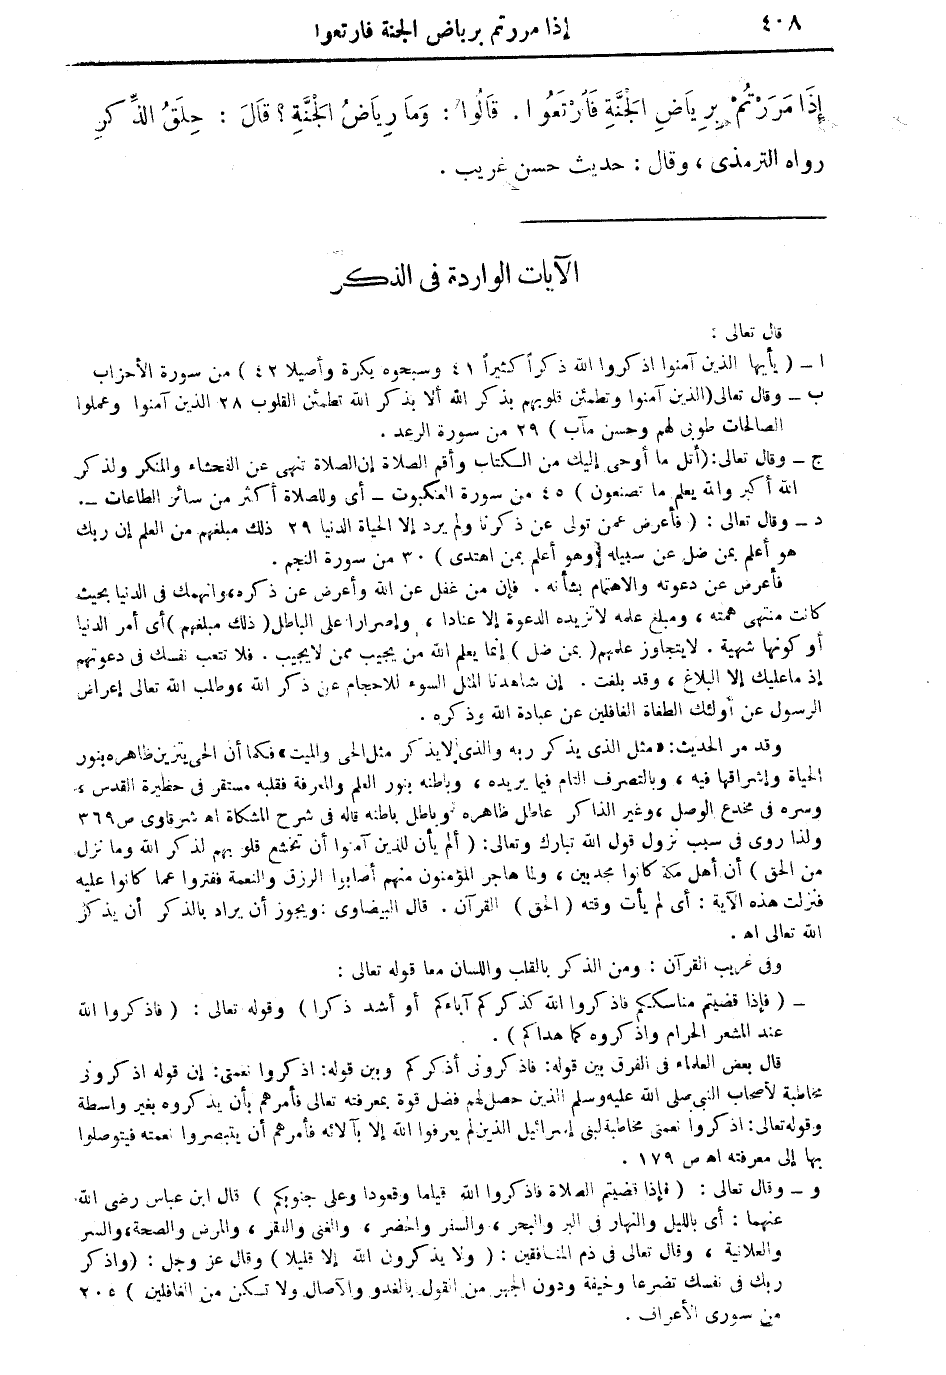 ٤٠٨
إذا مررتم برياض الجنة فارتعوا
إِذَا مَرَرْتُمْ بِرِيَاضِ الْجَنَّةِ فَارْتَعُوا. قَالُوا: وَمَا رِيَاضُ الْجَنَّةِ؟ قَالَ: حِلَقُ الذِّكْرِ
رواه الترمذى، وقال: حديث حسن غريب.
الآيات الواردة فى الذكر
قال تعالى:
ا ــ (يأيها الذين آمنوا اذكروا الله ذكراً كثيراً ٤١ وسبحوه بكرة وأصيلا ٤٢) من سورة الأحزاب
ب ــ وقال تعالى (الذين آمنوا وتطمئن قلوبهم بذكر الله ألا بذكر الله تطمئن القلوب ٢٨ الذين آمنوا وعملوا
الصالحات طوبى لهم وحسن مآب) ٢٩ من سورة الرعد.
ج ــ وقال تعالى: (أتل ما أوحى إليك من الكتاب وأقم الصلاة إن الصلاة تنهى عن الفحشاء والمنكر ولذكر
الله أكبر والله يعلم ما تصنعون) ٤٥ من سورة العنكبوت ــ أى وللصلاة أكثر من سائر الطاعات ــ.
د ــ وقال تعالى: (فأعرض عمن تولى عن ذكرنا ولم يرد إلا الحياة الدنيا ٢٩ ذلك مبلغهم من العلم إن ربك
هو أعلم بمن ضل عن سبيله وهو أعلم بمن اهتدى) ٣٠ من سورة النجم.
فأعرض عن دعوته والاهتمام بشأنه. فإن من غفل عن الله وأعرض عن ذكره، وانهمك فى الدنيا بحيث
كانت منتهى همته، ومبلغ علمه لا تزيده الدعوة إلا عنادا، وإصرارا على الباطل (ذلك مبلغهم) أى أمر الدنيا
أو كونها شهية. لا يتجاوز علمهم (بمن ضل) إنما يعلم الله من يجيب ممن لا يجيب. فلا تتعب نفسك فى دعوتهم
إذ ما عليك إلا البلاغ، وقد بلغت. إن شاهدنا المثل السوء للاحجام عن ذكر الله، وطلب الله تعالى إعراض
الرسول عن أولئك الطغاة الغافلين عن عبادة الله وذكره.
وقد مر الحديث: «مثل الذى يذكر ربه والذى لا يذكر مثل الحى والميت» فكما أن الحى يتزين ظاهره بنور
الحياة وإشراقها فيه، وبالتصرف التام فيما يريده، وباطنه بنور العلم والمعرفة فقلبه مستقر فى حظيرة القدس،
وسره فى مخدع الوصل، وغير الذاكر عاطل ظاهره وباطل باطنه قاله فى شرح المشكاة اه شرقاوى ص ٣٦٩
ولذا روى فى سبب نزول قول الله تبارك وتعالى: (ألم يأن للذين آمنوا أن تخشع قلوبهم لذكر الله وما نزل
من الحق) أن أهل مكة كانوا مجدبين، ولما هاجر المؤمنون منهم أصابوا الرزق والنعمة ففتروا عما كانوا عليه
فنزلت هذه الآية: أى لم يأت وقته (الحق) القرآن. قال البيضاوى: ويجوز أن يراد بالذكر أن يذكر
الله تعالى اه.
وفى غريب القرآن: ومن الذكر بالقلب واللسان معا قوله تعالى:
ــ (فإذا قضيتم مناسككم فاذكروا الله كذكركم آباءكم أو أشد ذكرا) وقوله تعالى: (فاذكروا الله
عند المشعر الحرام واذكروه كما هداكم).
قال بعض العلماء فى الفرق بين قوله: فاذكرونى أذكركم وبين قوله: اذكروا نعمتى: إن قوله اذكرونى
مخاطبة لأصحاب النبى صلى الله عليه وسلم الذين حصل لهم فضل قوة بمعرفته تعالى فأمرهم بأن يذكروه بغير واسطة
وقوله تعالى: اذكروا نعمتى مخاطبة لبنى إسرائيل الذين لم يعرفوا الله إلا بآلائه فأمرهم أن يتبصروا نعمته فيتوصلوا
بها إلى معرفته اه ص ١٧٩.
و ــ وقال تعالى: (فإذا قضيتم الصلاة فاذكروا الله قياما وقعودا وعلى جنوبكم) قال ابن عباس رضى الله
عنهما: أى بالليل والنهار فى البر والبحر، والسفر والحضر، والغنى والفقر، والمرض والصحة، والسر
والعلانية، وقال تعالى فى ذم المنافقين: (ولا يذكرون الله إلا قليلا) وقال عز وجل: (واذكر
ربك فى نفسك تضرعا وخيفة ودون الجهر من القول بالغدو والآصال ولا تكن من الغافلين) ٢٠٥
من سورى الأعراف.